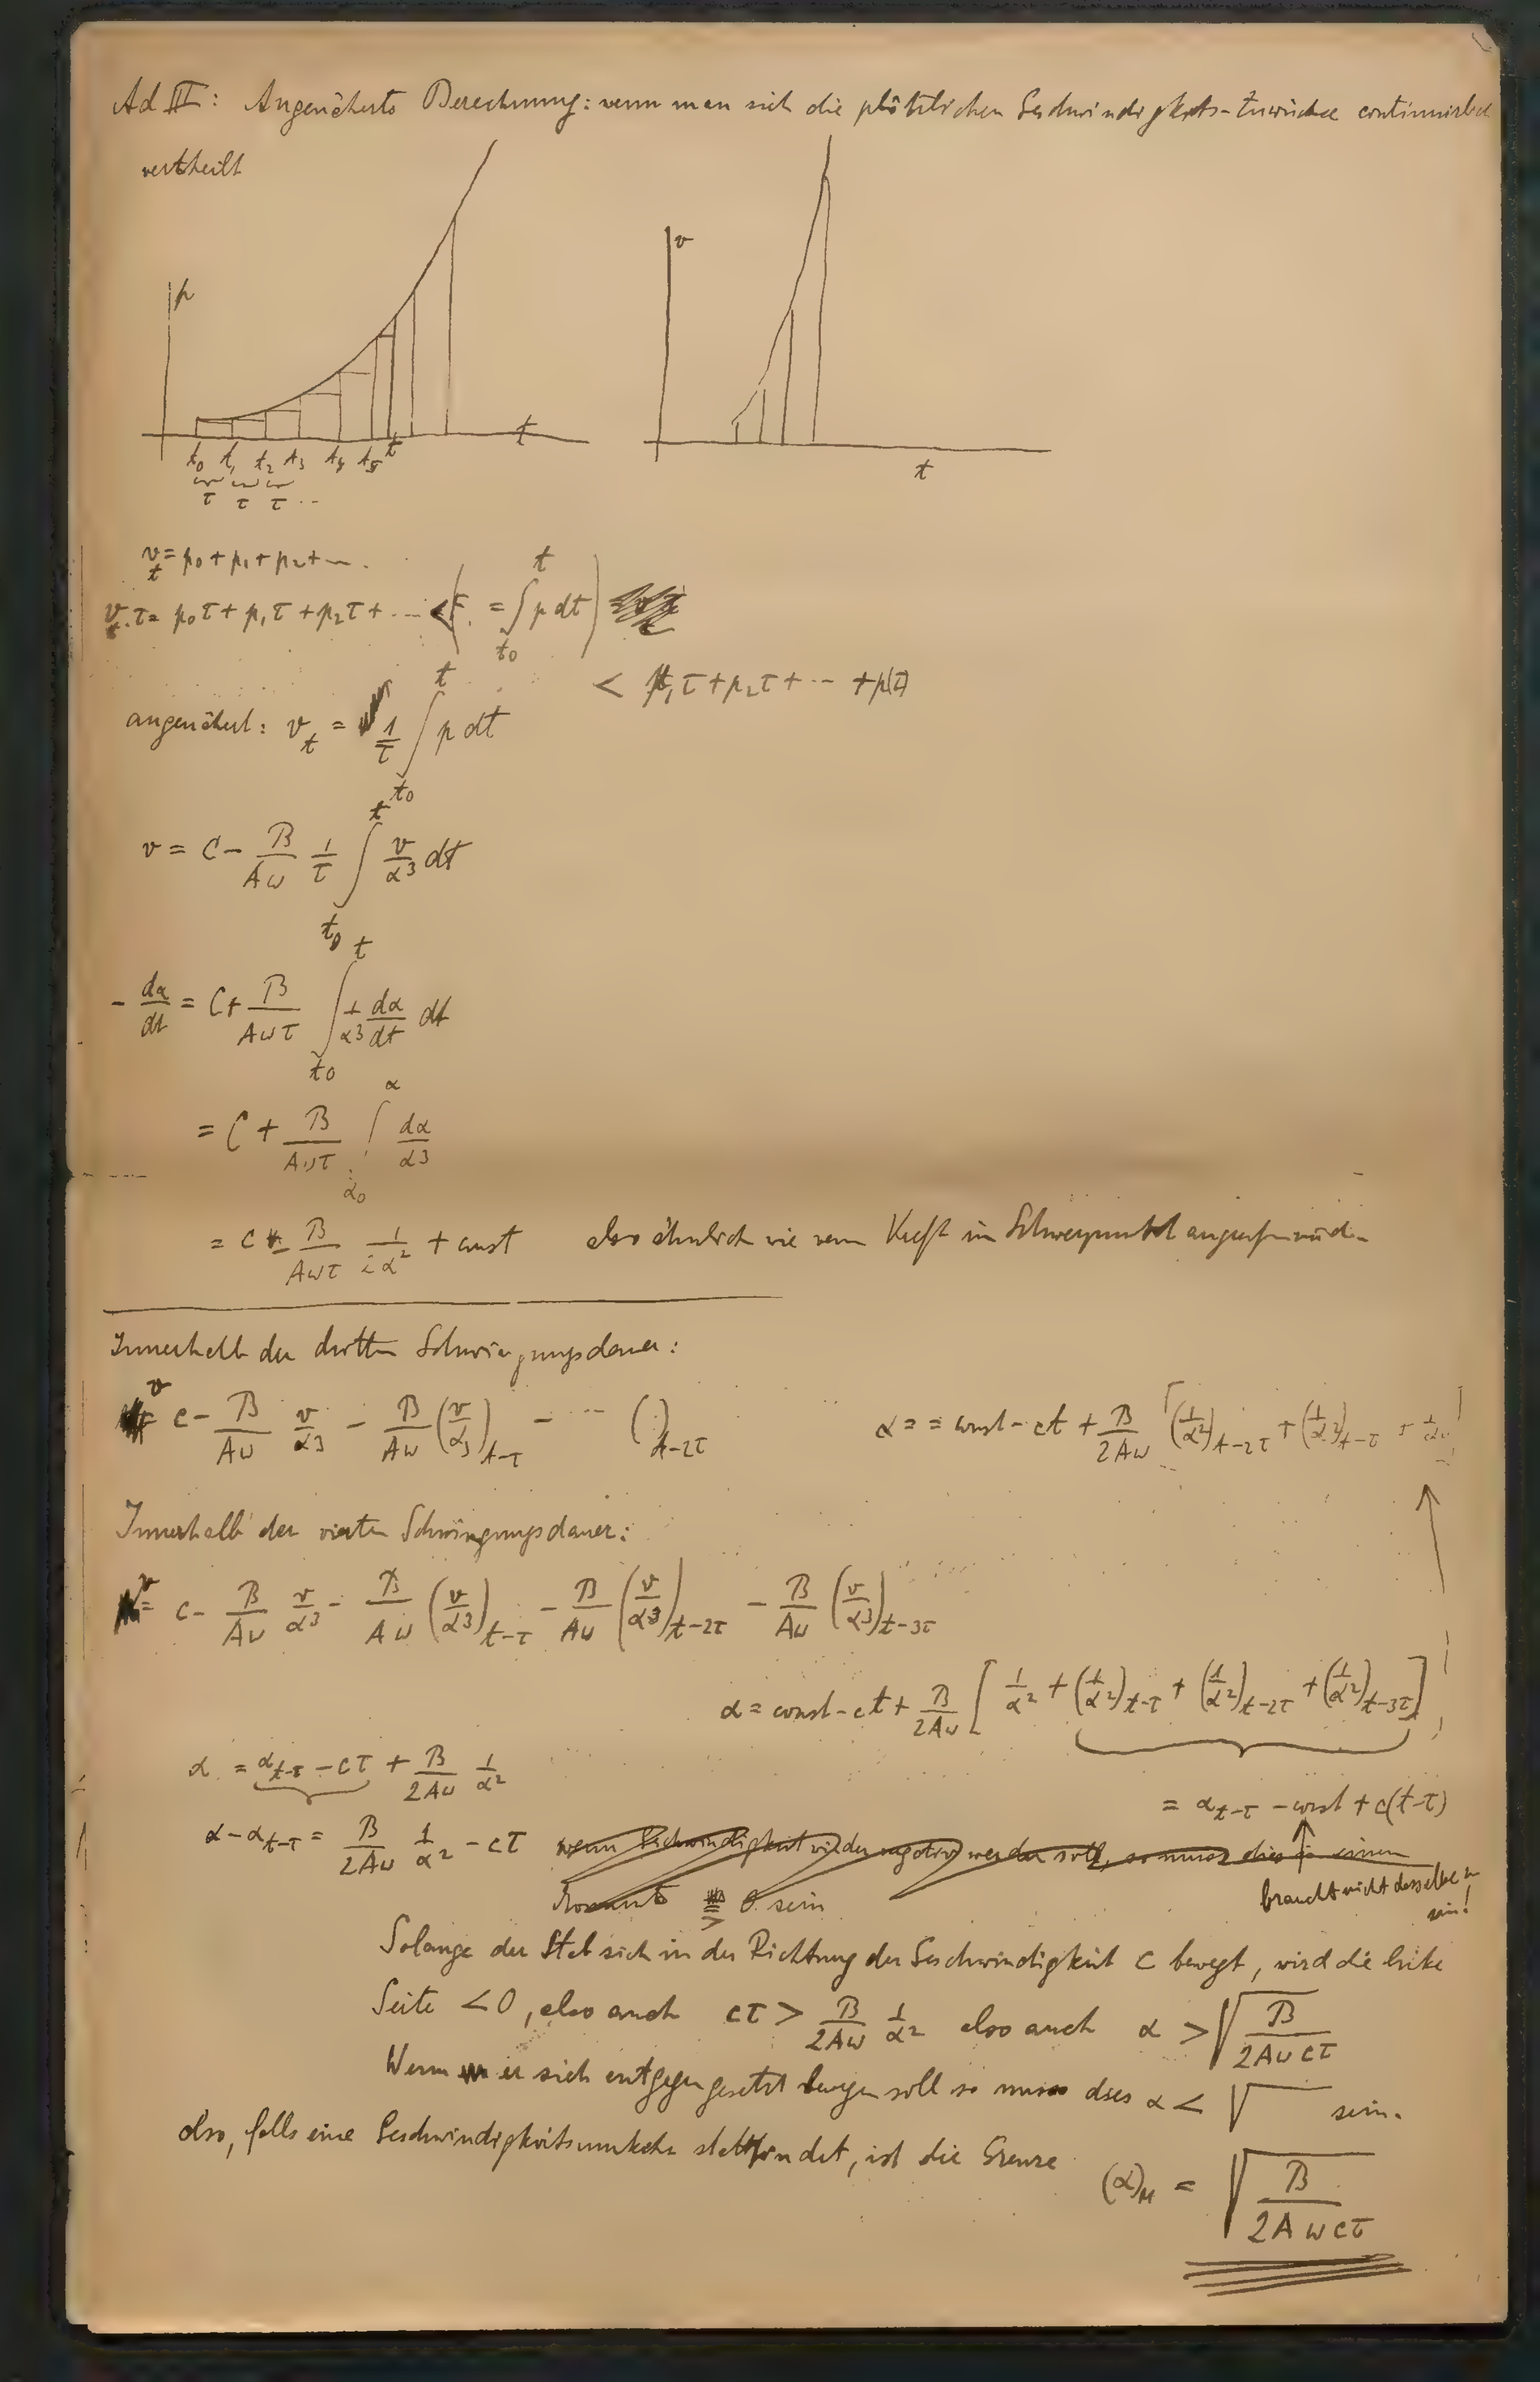 Ad III: Angenäherte Berechnung: wenn man sich die plötzlichen Geschwindigkeits-Zuwüchse continuirlich
vertheilt
p
v
t
t
t₀ t₁ t₂ t₃ t₄ t₅ t
τ τ τ ...
v_t = p₀ + p₁ + p₂ + ....
v_t . τ = p₀τ + p₁τ + p₂τ + .... < (F = ∫_{t₀}^{t} p dt)
< p₁τ + p₂τ + ... + p(τ)
angenähert: v_t = 1/τ ∫_{t₀}^{t} p dt
v = C - B/Aω 1/τ ∫_{t₀}^{t} v/α³ dt
- dα/dt = C + B/Aωτ ∫_{t₀}^{t} 1/α³ dα/dt dt
= C + B/Aωτ ∫_{α₀}^{α} dα/α³
= C ± B/Aωτ 1/2α² + const also ähnlich wie wenn Kraft im Schwerpunkt angreifen würde
Innerhalb der dritten Schwingungsdauer:
v = c - B/Aω v/α³ - B/Aω (v/α³)_{t-τ} - ... ( )_{t-2τ}
α = = const - ct + B/2Aω [(1/α²)_{t-2τ} + (1/α²)_{t-τ} + 1/α²]
Innerhalb der vierten Schwingungsdauer:
v = c - B/Aω v/α³ - B/Aω (v/α³)_{t-τ} - B/Aω (v/α³)_{t-2τ} - B/Aω (v/α³)_{t-3τ}
α = const - ct + B/2Aω [1/α² + (1/α²)_{t-τ} + (1/α²)_{t-2τ} + (1/α²)_{t-3τ}]
α = α_{t-τ} - cτ + B/2Aω 1/α²
= α_{t-τ} - const + c(t-τ)
α - α_{t-τ} = B/2Aω 1/α² - cτ wenn Geschwindigkeit wieder negativ werden soll, so muss dies in einem
braucht nicht dasselbe zu
sein!
Moment ≧ 0 sein
Solange der Stab sich in der Richtung der Geschwindigkeit c bewegt, wird die linke
Seite < 0, also auch cτ > B/2Aω 1/α² also auch α > √(B/2Aωcτ)
Wenn er sich entgegengesetzt bewegen soll so muss dies α < √ sein.
also, falls eine Geschwindigkeitsumkehr stattfindet, ist die Grenze
(α)_M = √(B/2Aωcτ)